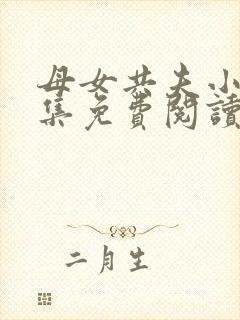 母女共夫小
集免費閱讀
二月生